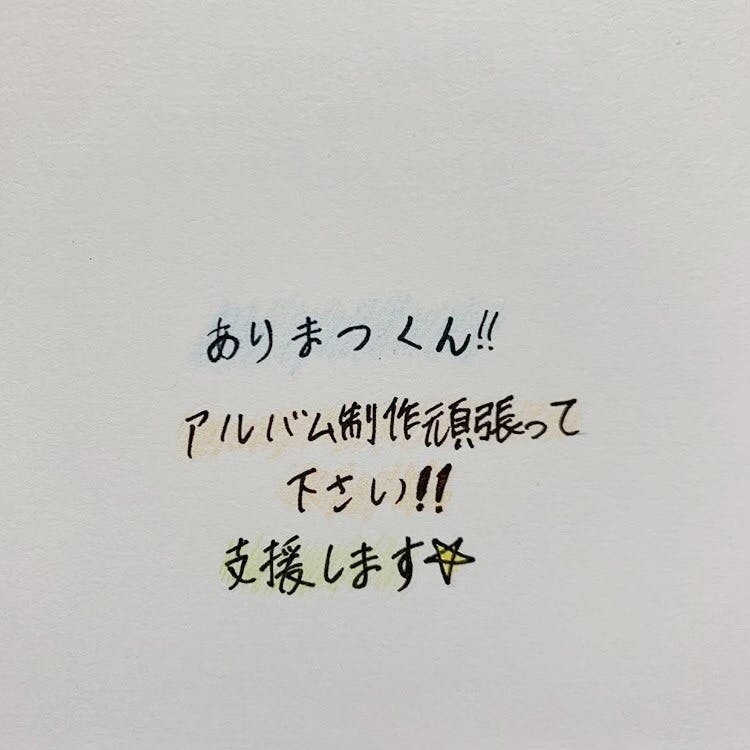 ありまつくん!!
アルバム制作頑張って
下さい!!
支援します☆